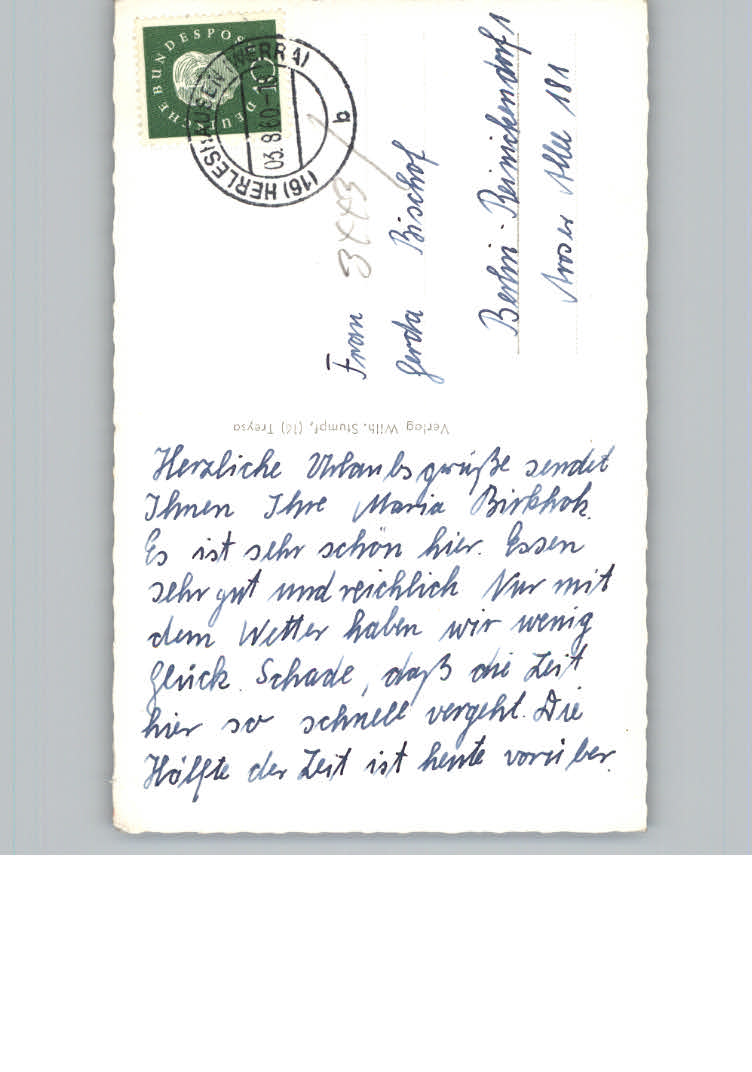 DEUTSCHE BUNDESPOST
(16) HERLESHAUSEN (WERRA)
03.8.60-18
b
3443
Frau
Gerda Bischof
Berlin-Reinickendorf 1
Aroser Allee 181
Verlag Wilh. Stumpf, (16) Treysa
Herzliche Urlaubsgrüße sendet
Ihnen Ihre Maria Birkholz.
Es ist sehr schön hier. Essen
sehr gut und reichlich Nur mit
dem Wetter haben wir wenig
Glück. Schade, daß die Zeit
hier so schnell vergeht. Die
Hälfte der Zeit ist heute vorüber.